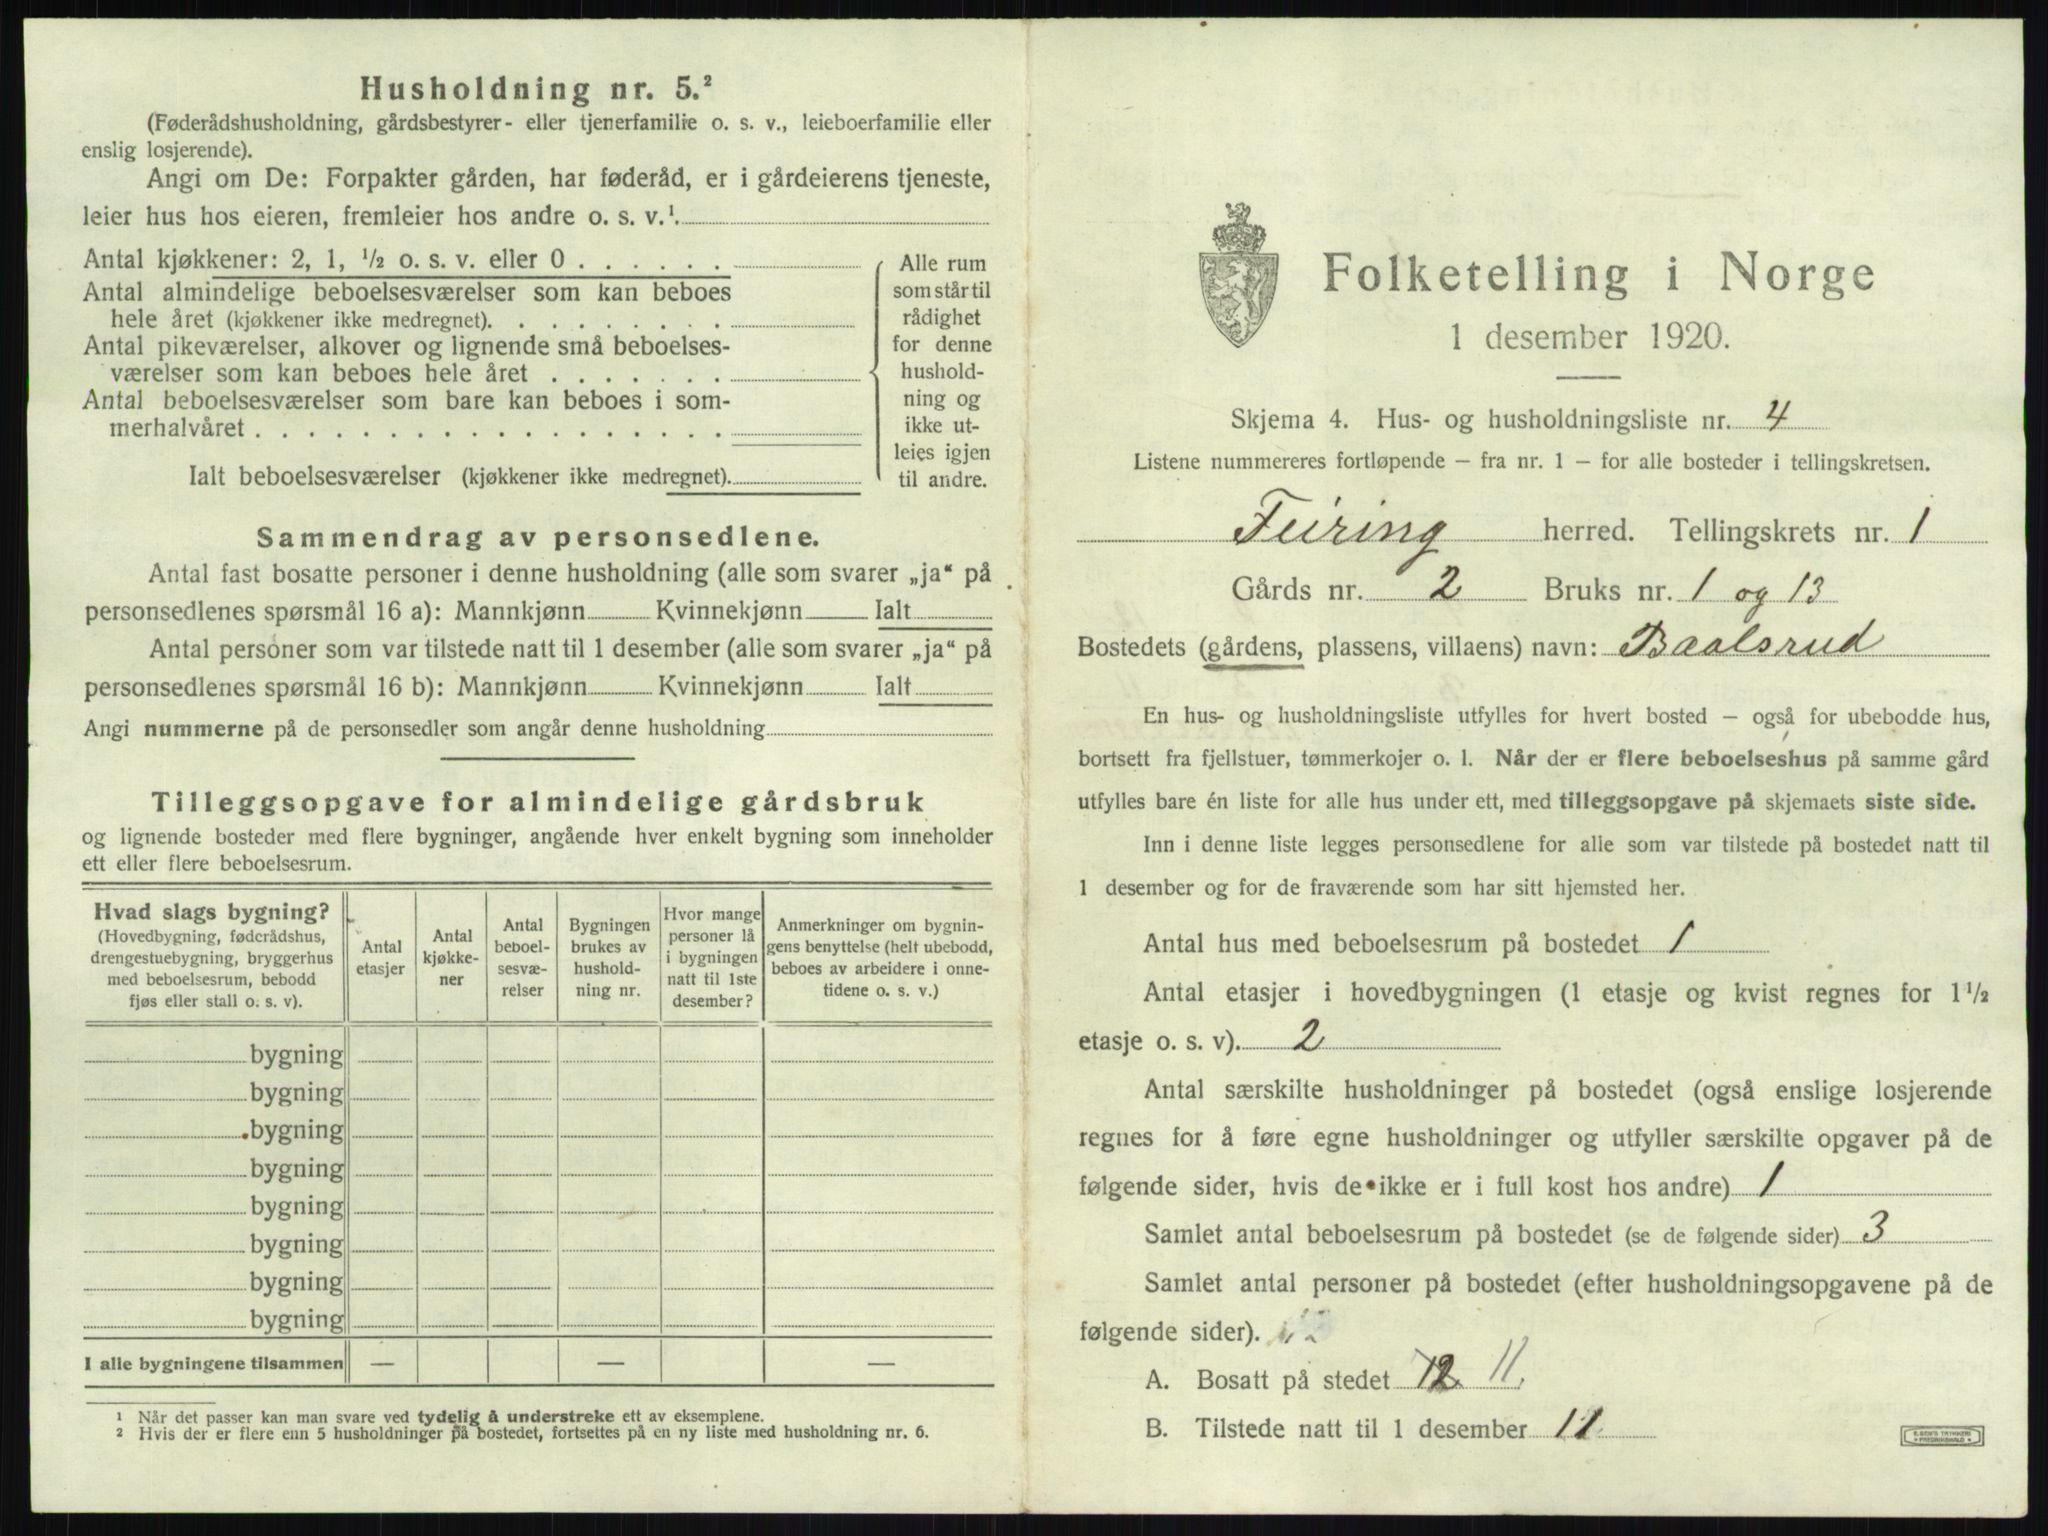 Husholdning nr. 5.²
(Føderådshusholdning, gårdsbestyrer- eller tjenerfamilie o. s. v., leieboerfamilie eller
enslig losjerende).
Angi om De: Forpakter gården, har føderåd, er i gårdeierens tjeneste,
leier hus hos eieren, fremleier hos andre o. s. v.¹
Antal kjøkkener: 2, 1, ½ o. s. v. eller 0 . . . . . .
Antal almindelige beboelsesværelser som kan beboes
hele året (kjøkkener ikke medregnet). . . . . . . . .
Antal pikeværelser, alkover og lignende små beboelses-
værelser som kan beboes hele året . . . . . . .
Antal beboelsesværelser som bare kan beboes i som-
merhalvåret . . . . . . . . . . . . . . . . . .
Ialt beboelsesværelser (kjøkkener ikke medregnet).
Alle rum
som står til
rådighet
for denne
hushold-
ning og
ikke ut-
leies igjen
til andre.
Sammendrag av personsedlene.
Antal fast bosatte personer i denne husholdning (alle som svarer „ja“ på
personsedlenes spørsmål 16 a): Mannkjønn Kvinnekjønn Ialt
Antal personer som var tilstede natt til 1 desember (alle som svarer „ja“ på
personsedlenes spørsmål 16 b): Mannkjønn Kvinnekjønn Ialt
Angi nummerne på de personsedler som angår denne husholdning
Tilleggsopgave for almindelige gårdsbruk
og lignende bosteder med flere bygninger, angående hver enkelt bygning som inneholder
ett eller flere beboelsesrum.
Hvad slags bygning?
(Hovedbygning, føderådshus,
drengestuebygning, bryggerhus
med beboelsesrum, bebodd
fjøs eller stall o. s. v).
Antal
etasjer
Antal
kjøkke-
ner
Antal
beboel-
sesvæ-
relser
Bygningen
brukes av
hushold-
ning nr.
Hvor mange
personer lå
i bygningen
natt til 1ste
desember?
Anmerkninger om bygnin-
gens benyttelse (helt ubebodd,
beboes av arbeidere i onne-
tidene o. s. v.)
bygning
bygning
bygning
bygning
bygning
bygning
bygning
bygning
I alle bygningene tilsammen — — —
¹ Når det passer kan man svare ved tydelig å understreke ett av eksemplene.
² Hvis der er flere enn 5 husholdninger på bostedet, fortsettes på en ny liste med husholdning nr. 6.
Folketelling i Norge
1 desember 1920.
Skjema 4. Hus- og husholdningsliste nr. 4
Listene nummereres fortløpende – fra nr. 1 – for alle bosteder i tellingskretsen.
Feiring herred. Tellingskrets nr. 1
Gårds nr. 2 Bruks nr. 1 og 13
Bostedets (gårdens, plassens, villaens) navn: Baalsrud
En hus- og husholdningsliste utfylles for hvert bosted – også for ubebodde hus,
bortsett fra fjellstuer, tømmerkojer o. l. Når der er flere beboelseshus på samme gård
utfylles bare én liste for alle hus under ett, med tilleggsopgave på skjemaets siste side.
Inn i denne liste legges personsedlene for alle som var tilstede på bostedet natt til
1 desember og for de fraværende som har sitt hjemsted her.
Antal hus med beboelsesrum på bostedet 1
Antal etasjer i hovedbygningen (1 etasje og kvist regnes for 1½
etasje o. s. v). 2
Antal særskilte husholdninger på bostedet (også enslige losjerende
regnes for å føre egne husholdninger og utfyller særskilte opgaver på de
følgende sider, hvis de ikke er i full kost hos andre) 1
Samlet antal beboelsesrum på bostedet (se de følgende sider) 3
Samlet antal personer på bostedet (efter husholdningsopgavene på de
følgende sider).
A. Bosatt på stedet 12 11
B. Tilstede natt til 1 desember 11